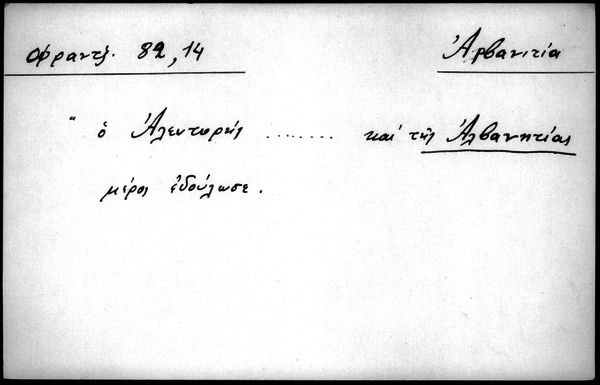 Φραντζ. 82, 14
Ἀρβανιτία
" ὁ Ἀλευτωρής ........ καὶ τῆς Ἀλβανητίας
μέρος ἐδούλωσε.